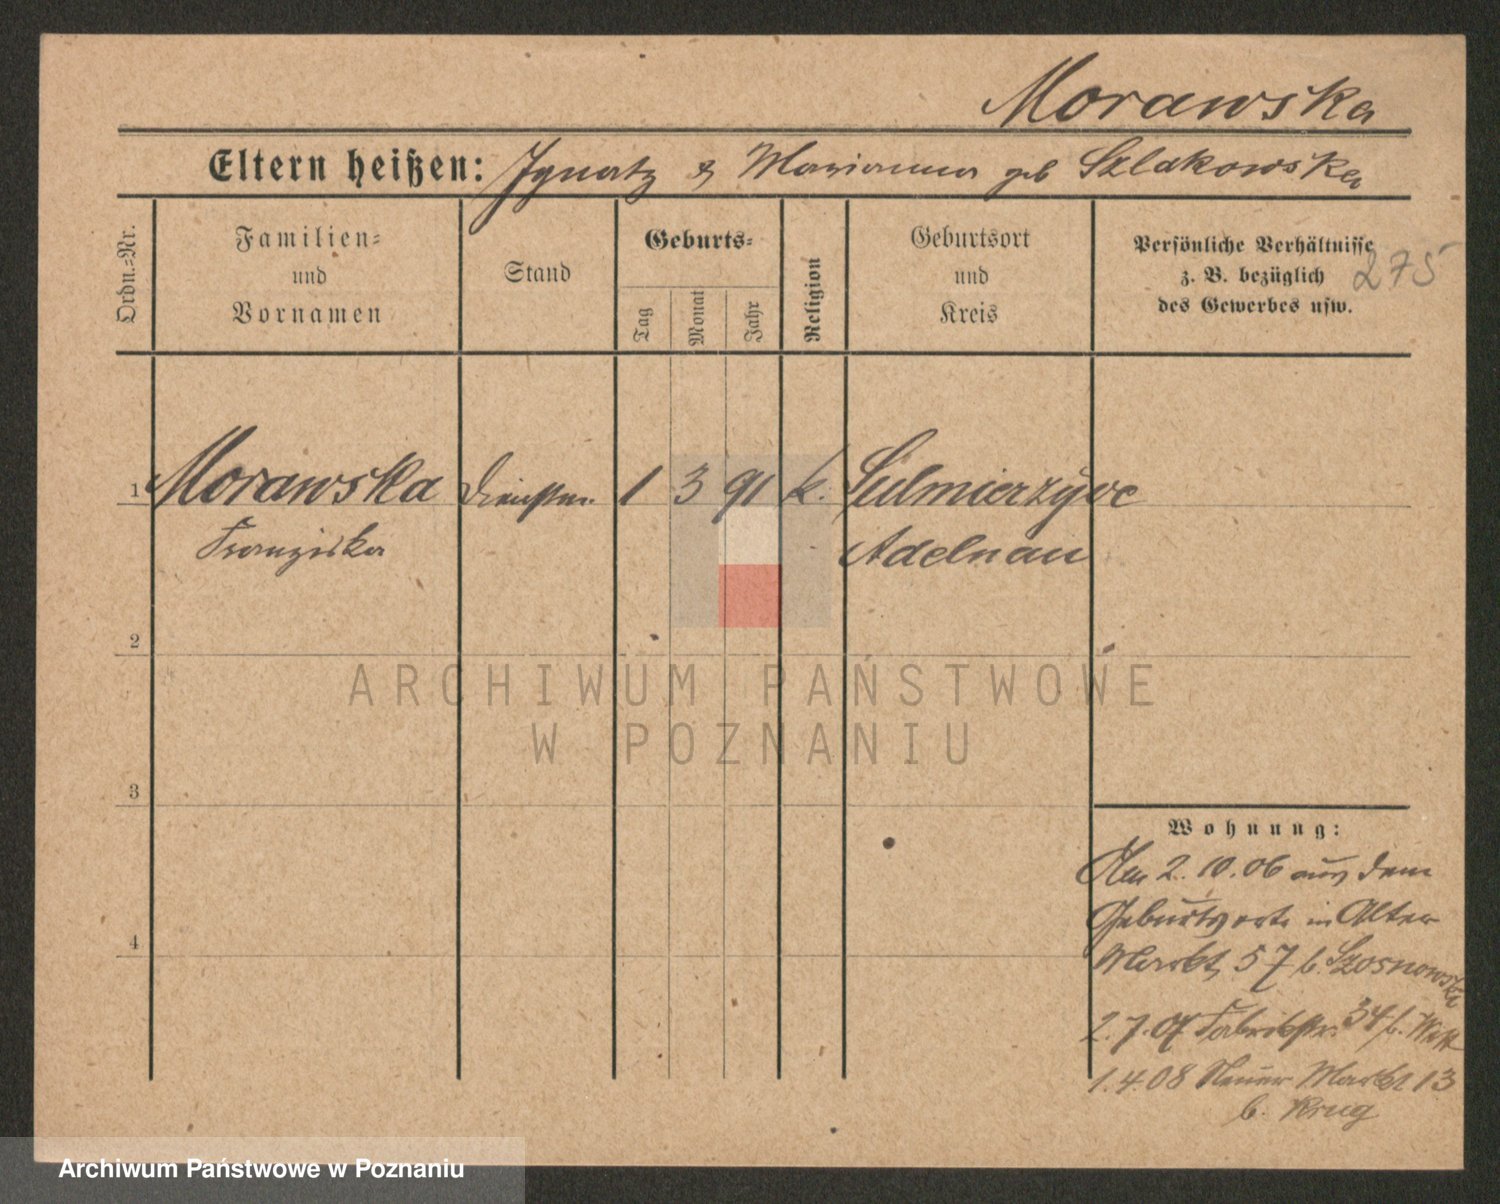 Morawska
Eltern heißen: Ignatz & Marianna geb Szlakowska
Ordn.-Nr.
Familien-
und
Vornamen
Stand
Geburts-
Tag
Monat
Jahr
Religion
Geburtsort
und
Kreis
Persönliche Verhältnisse
z. B. bezüglich
des Gewerbes usw.
275
1 Morawska Dienstm. 1 3 91 k. Sulmierzyce
Franziska Adelnau
2
ARCHIWUM PAŃSTWOWE
W POZNANIU
3
Wohnung:
Am 2. 10. 06 aus dem
Geburtsorte in Alter
4
Markt 57 b. Szosnowska
2. 7. 07 Fabrikstr. 34 b.
1. 4. 08 Neuer Markt 13
b. Krug
Archiwum Państwowe w Poznaniu